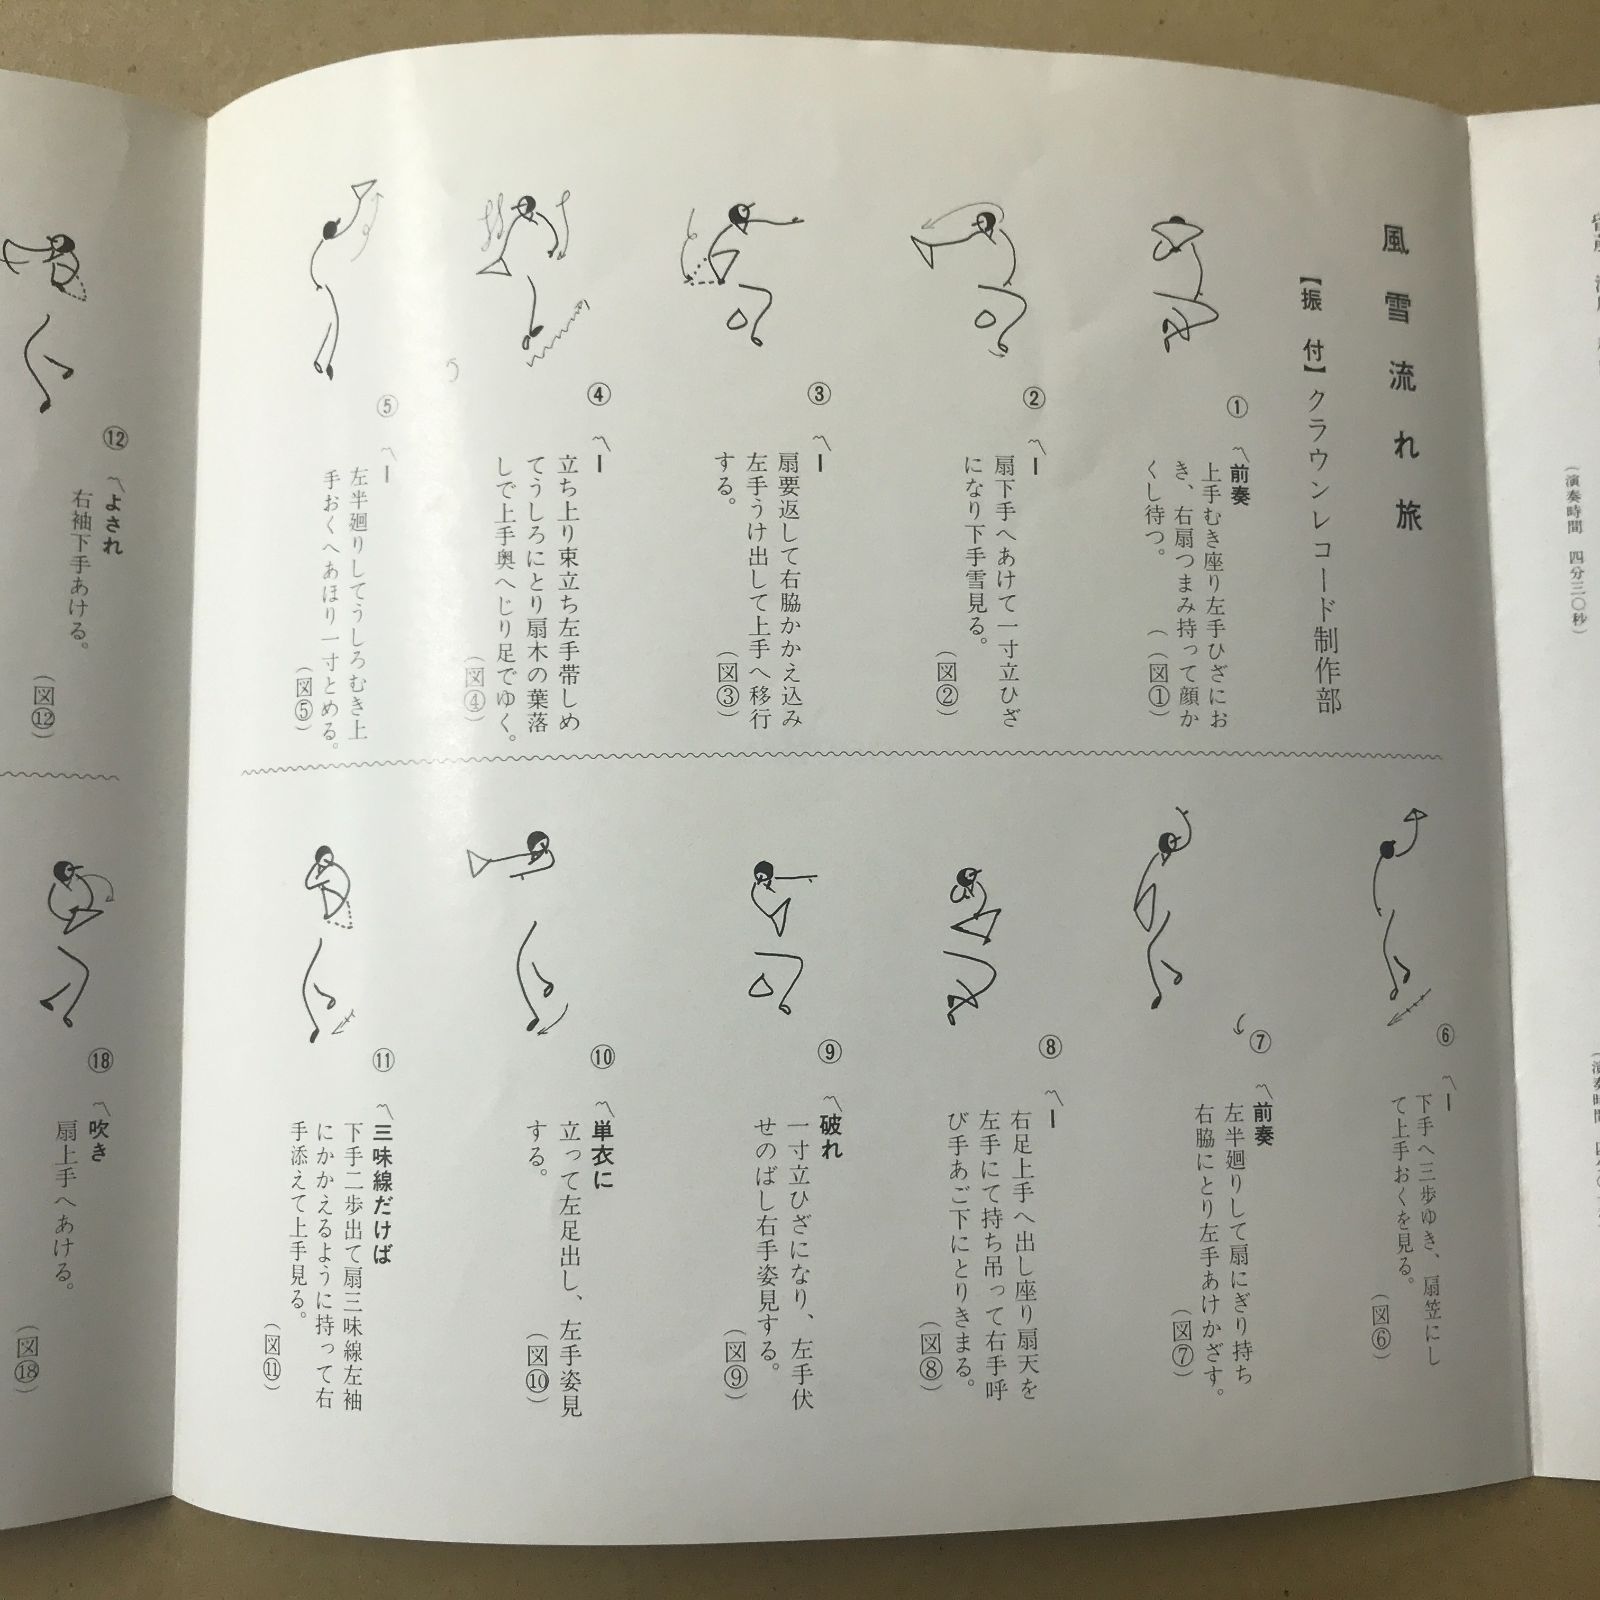 （演奏時間　四分三〇秒）
風雪流れ旅
【振　付】クラウンレコード制作部
①
〽前奏
上手むき座り左手ひざにお
き、右扇つまみ持って顔か
くし待つ。
（図①）
②
〽ー
扇下手へあけて一寸立ひざ
になり下手雪見る。
（図②）
③
〽ー
扇要返して右脇かかえ込み
左手うけ出して上手へ移行
する。
（図③）
④
〽ー
立ち上り束立ち左手帯しめ
てうしろにとり扇木の葉落
しで上手奥へじり足でゆく。
（図④）
⑤
〽ー
左半廻りしてうしろむき上
手おくへあほり一寸とめる。
（図⑤）
⑥
〽ー
下手へ三歩ゆき、扇笠にし
て上手おくを見る。
（図⑥）
⑦
〽前奏
左半廻りして扇にぎり持ち
右脇にとり左手あけかざす。
（図⑦）
⑧
〽ー
右足上手へ出し座り扇天を
左手にて持ち吊って右手呼
び手あご下にとりきまる。
（図⑧）
⑨
〽破れ
一寸立ひざになり、左手伏
せのばし右手姿見する。
（図⑨）
⑩
〽単衣に
立って左足出し、左手姿見
する。
（図⑩）
⑪
〽三味線だけば
下手二歩出て扇三味線左袖
にかかえるように持って右
手添えて上手見る。
（図⑪）
⑫
〽よされ
右袖下手あける。
（図⑫）
⑱
〽吹き
扇上手へあける。
（図⑱）